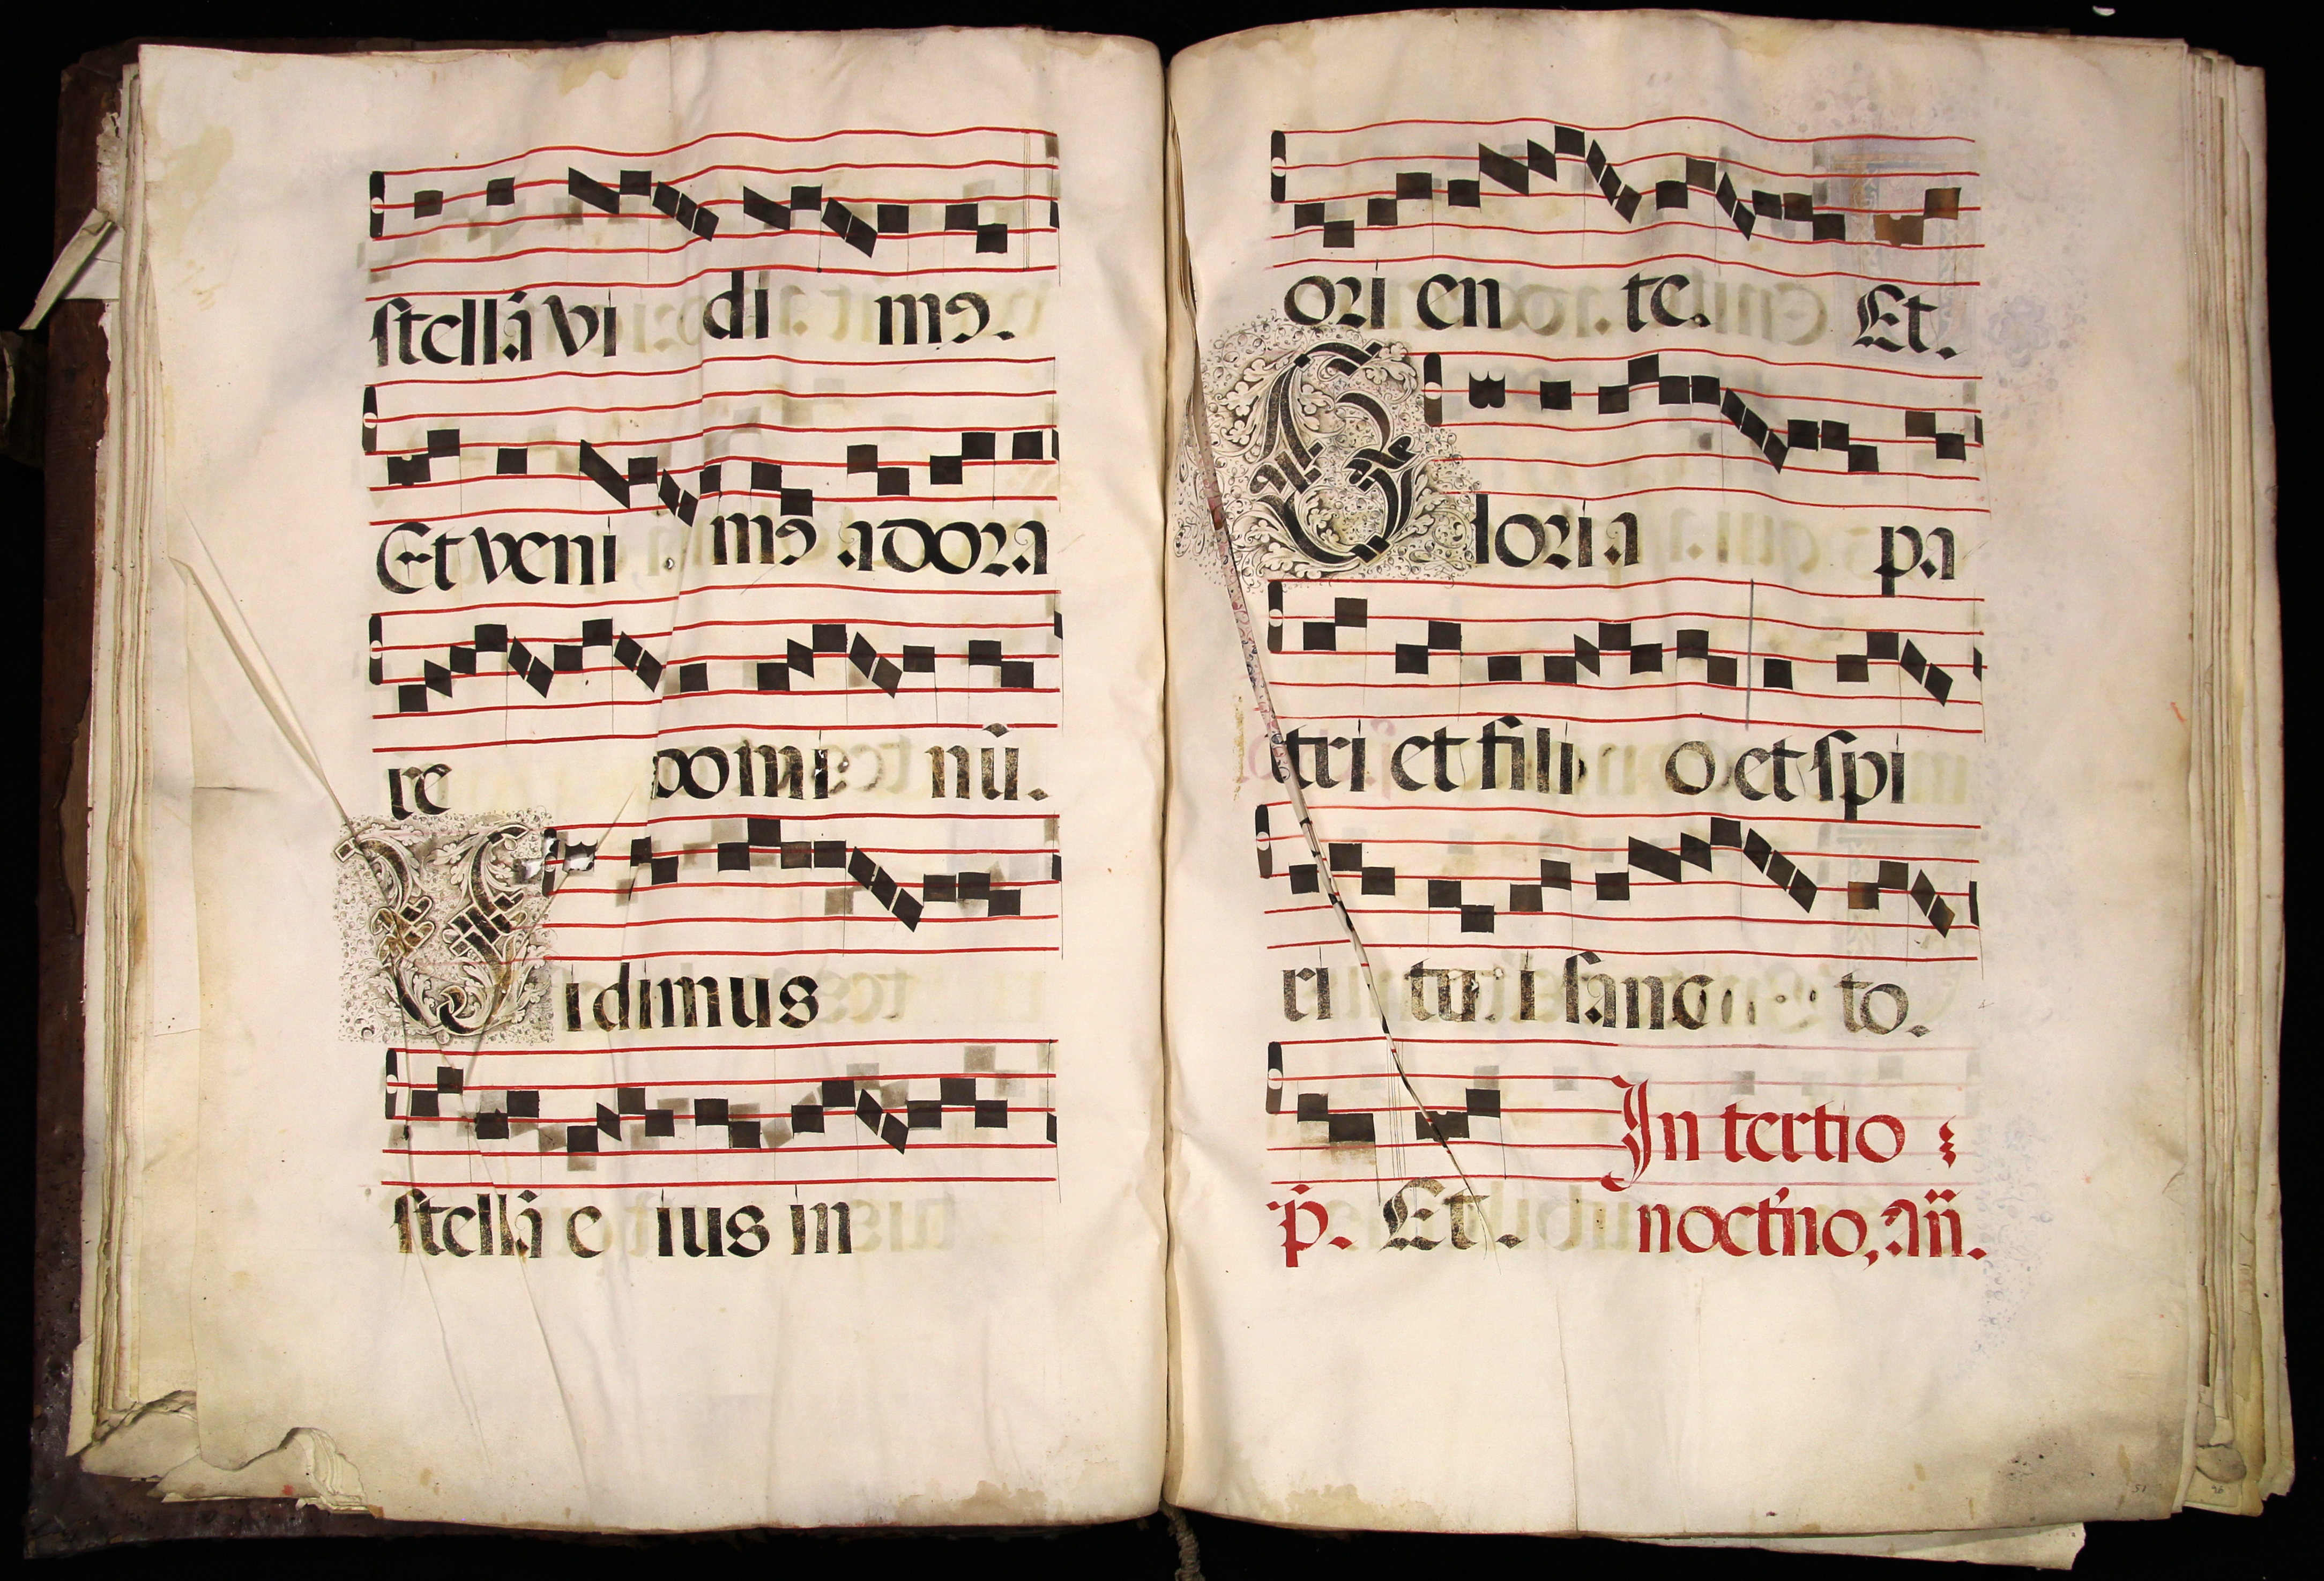 stellā vi di mꝰ.
Et veni mꝰ adora
re domi nū.
Vidimus
stellā e ius in
ori en te. Et.
Gloria pa
tri et fili o et spi
ri tui sanc to.
In tertio
p̄. Et. noct'no, añ.
51